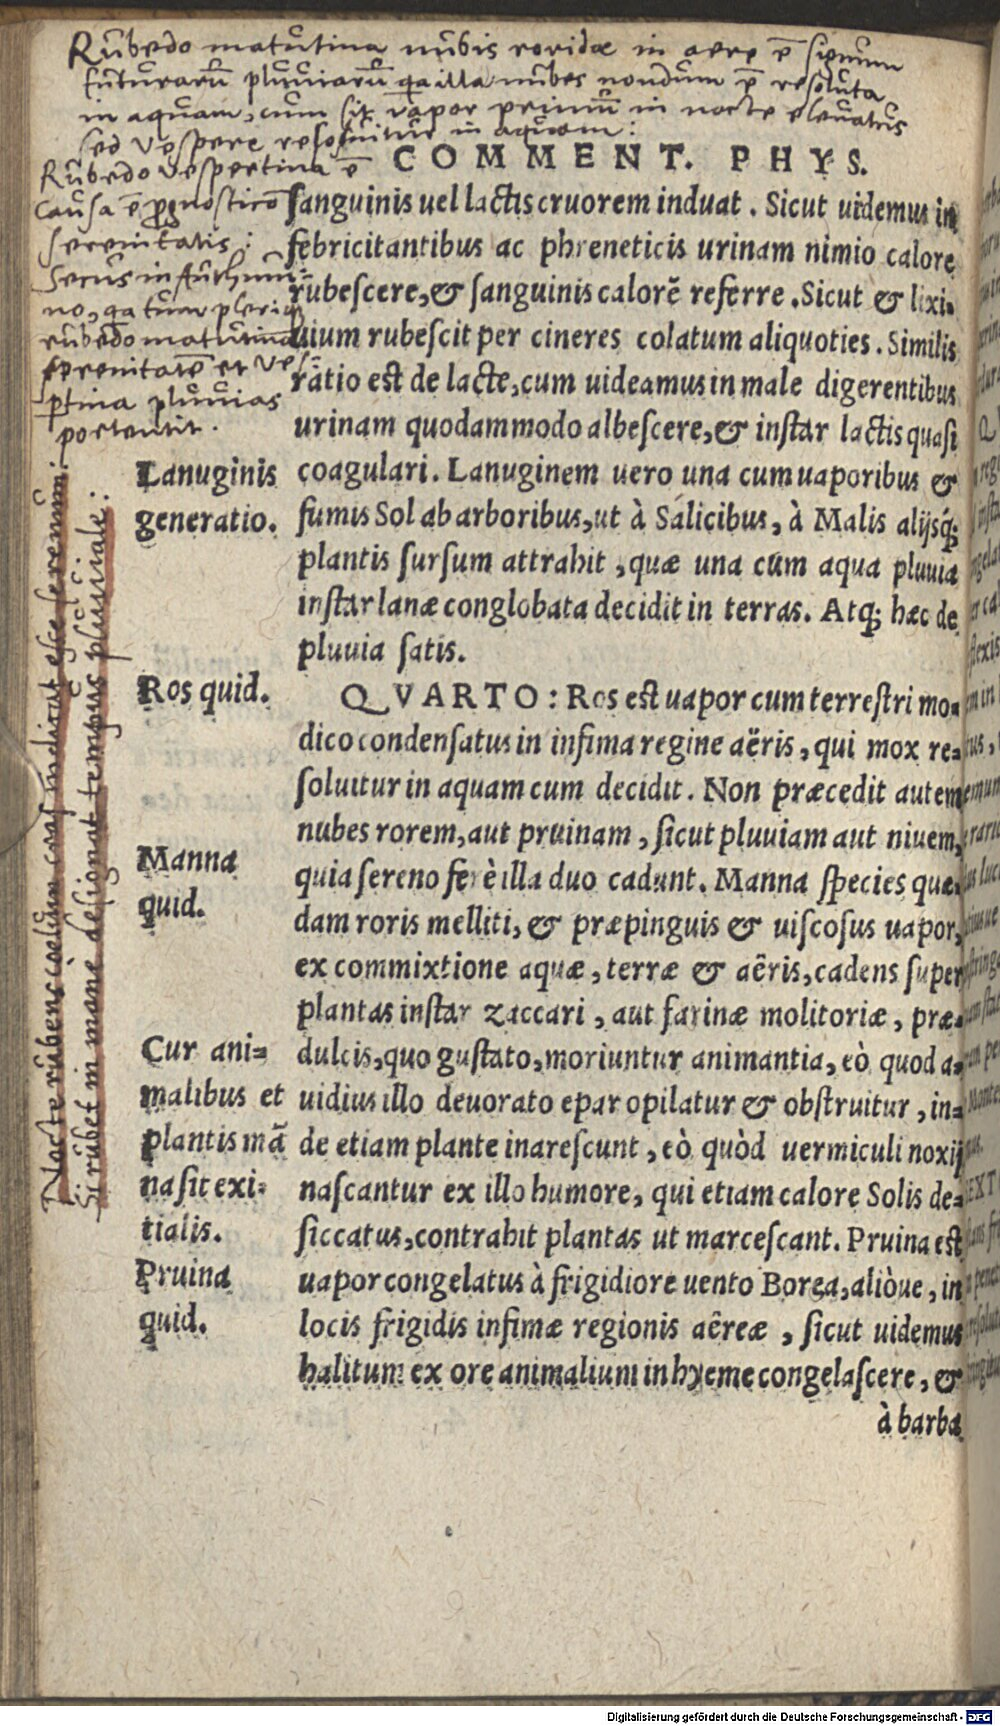 Rubedo matutina nubis roridæ in aere ē signum
futurarū pluuiarū qa illa nubes nondum ē resoluta
in aquam, cum sit vapor primū in nocte eleuatus
sed vespere resoluitur in aquam:
Rubedo vespertina ē
causa ē prognosticō
serenitatis:
secus in Authum-
no, qa tum pleriq
rubedo matutina
serenitatē et ves
pertina pluuias
portendit.
Nocte rubens coelum cras indicat esse serenum:
Si rubet in mane designat tempus pluuiale:
COMMENT. PHYS.
ſanguinis uel lactis cruorem induat. Sicut uidemus in
febricitantibus ac phreneticis urinam nimio calore
rubeſcere, & ſanguinis calorē referre. Sicut & lixi-
uium rubeſcit per cineres colatum aliquoties. Similis
ratio est de lacte, cum uideamus in male digerentibus
urinam quodammodo albeſcere, & inſtar lactis quaſi
Lanuginis
generatio.
coagulari. Lanuginem uero una cum uaporibus &
fumis Sol ab arboribus, ut à Salicibus, à Malis alijsq;
plantis ſurſum attrahit, quæ una cum aqua pluuia
inſtar lanæ conglobata decidit in terras. Atq; hæc de
pluuia ſatis.
Ros quid.
QVARTO: Ros est uapor cum terreſtri mo-
dico condenſatus in infima regine aëris, qui mox re-
ſoluitur in aquam cum decidit. Non præcedit autem
nubes rorem, aut pruinam, ſicut pluuiam aut niuem,
Manna
quid.
quia ſereno ferè illa duo cadunt. Manna ſpecies quæ-
dam roris melliti, & præpinguis & uiſcoſus uapor,
ex commixtione aquæ, terræ & aëris, cadens ſuper
plantas inſtar zaccari, aut farinæ molitoriæ, præ-
Cur ani=
malibus et
plantis mā
na ſit exi-
tialis.
dulcis, quo guſtato, moriuntur animantia, eò quod a-
uidius illo deuorato epar opilatur & obſtruitur, in-
de etiam plante inareſcunt, eò quòd uermiculi noxij
naſcantur ex illo humore, qui etiam calore Solis de-
ſiccatus, contrahit plantas ut marceſcant. Pruina est
Pruina
quid.
uapor congelatus à frigidiore uento Borea, aliòue, in
locis frigidis infimæ regionis aëreæ, ſicut uidemus
halitum ex ore animalium in hyeme congelaſcere, &
à barba
Digitalisierung gefördert durch die Deutsche Forschungsgemeinschaft - DFG